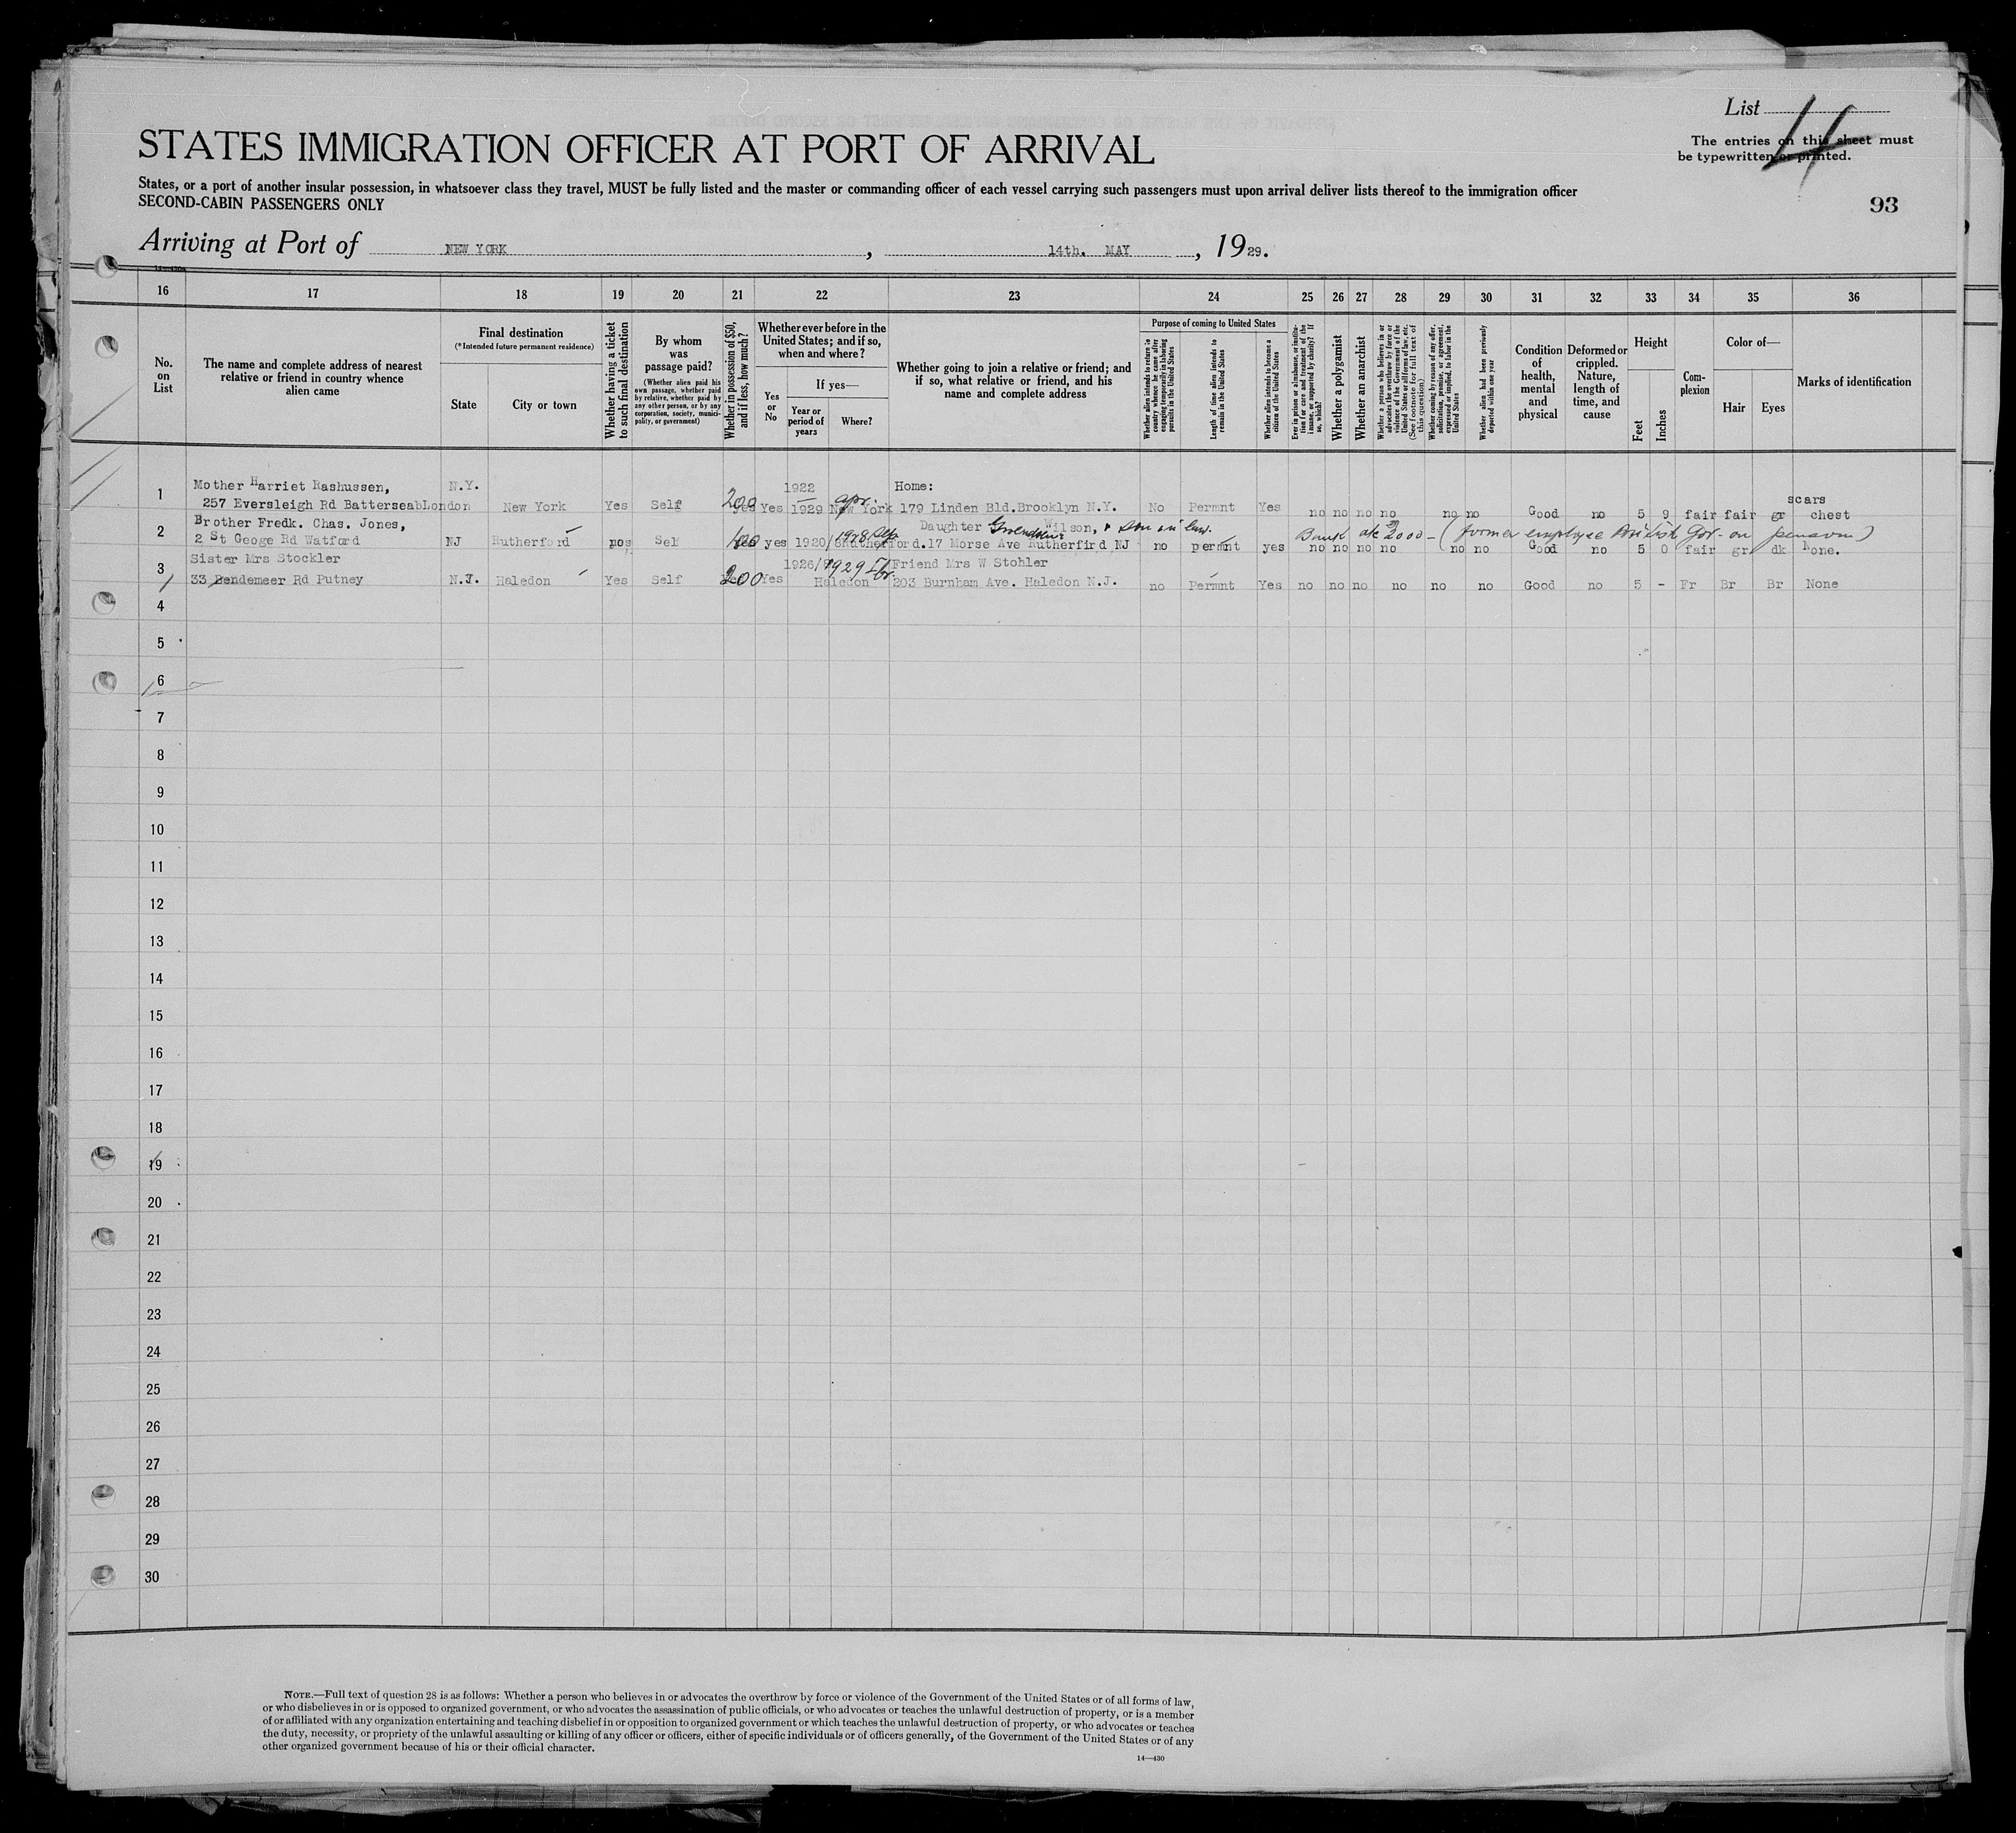 List 4
The entries on this sheet must
be typewritten or printed.
STATES IMMIGRATION OFFICER AT PORT OF ARRIVAL
States, or a port of another insular possession, in whatsoever class they travel, MUST be fully listed and the master or commanding officer of each vessel carrying such passengers must upon arrival deliver lists thereof to the immigration officer
SECOND-CABIN PASSENGERS ONLY
93
Arriving at Port of NEW YORK, 14th. MAY, 1929.
16 17 18 19 20 21 22 23 24 25 26 27 28 29 30 31 32 33 34 35 36
No. on List
The name and complete address of nearest relative or friend in country whence alien came
Final destination
(*Intended future permanent residence)
State
City or town
Whether having a ticket to such final destination
By whom was passage paid?
(Whether alien paid his own passage, whether paid by relative, whether paid by any other person, or by any corporation, society, municipality, or government)
Whether in possession of $50, and if less, how much?
Whether ever before in the United States; and if so, when and where?
Yes or No
If yes—
Year or period of years
Where?
Whether going to join a relative or friend; and if so, what relative or friend, and his name and complete address
Purpose of coming to United States
Whether alien intends to return to country whence he came after engaging temporarily in laboring pursuits in the United States
Length of time alien intends to remain in the United States
Whether alien intends to become a citizen of the United States
Ever in prison or almshouse, or institution for care and treatment of the insane, or supported by charity? If so, which?
Whether a polygamist
Whether an anarchist
Whether a person who believes in or advocates the overthrow by force or violence of the Government of the United States or all forms of law, etc. (See footnote for full text of this question)
Whether coming by reason of any offer, solicitation, promise, or agreement, expressed or implied, to labor in the United States
Whether alien had been previously deported within one year
Condition of health, mental and physical
Deformed or crippled. Nature, length of time, and cause
Height
Feet
Inches
Complexion
Color of—
Hair
Eyes
Marks of identification
Mother Harriet Rashussen, N.Y. 1922 Home: scars
1 257 Eversleigh Rd BatterseabLondon New York Yes Self 200 Yes 1929 New York apr. 179 Linden Bld.Brooklyn N.Y. No Permnt Yes no no no no no no Good no 5 9 fair fair gr chest
Brother Fredk. Chas. Jones, Daughter Wilson, & son in law. Bank 2000 - (former employee British Gov. on pension)
2 2 St Geoge Rd Watford NJ Rutherford Self yes 1920/ 17 Morse Ave Rutherfird NJ no permnt yes no no no no no no Good no 5 0 fair gr dk None.
Sister Mrs Stockler 1926/ 1929 Friend Mrs W Stohler
3 33 Bendemeer Rd Putney N.J. Haledon Yes Self 200 Yes Haledon 203 Burnham Ave. Haledon N.J. no Permnt Yes no no no no no no Good no 5 - Fr Br Br None
4
5
6
7
8
9
10
11
12
13
14
15
16
17
18
19
20
21
22
23
24
25
26
27
28
29
30
NOTE.—Full text of question 28 is as follows: Whether a person who believes in or advocates the overthrow by force or violence of the Government of the United States or of all forms of law,
or who disbelieves in or is opposed to organized government, or who advocates the assassination of public officials, or who advocates or teaches the unlawful destruction of property, or is a member
of or affiliated with any organization entertaining and teaching disbelief in or opposition to organized government or which teaches the unlawful destruction of property, or who advocates or teaches
the duty, necessity, or propriety of the unlawful assaulting or killing of any officer or officers, either of specific individuals or of officers generally, of the Government of the United States or of any
other organized government because of his or their official character.
14—430